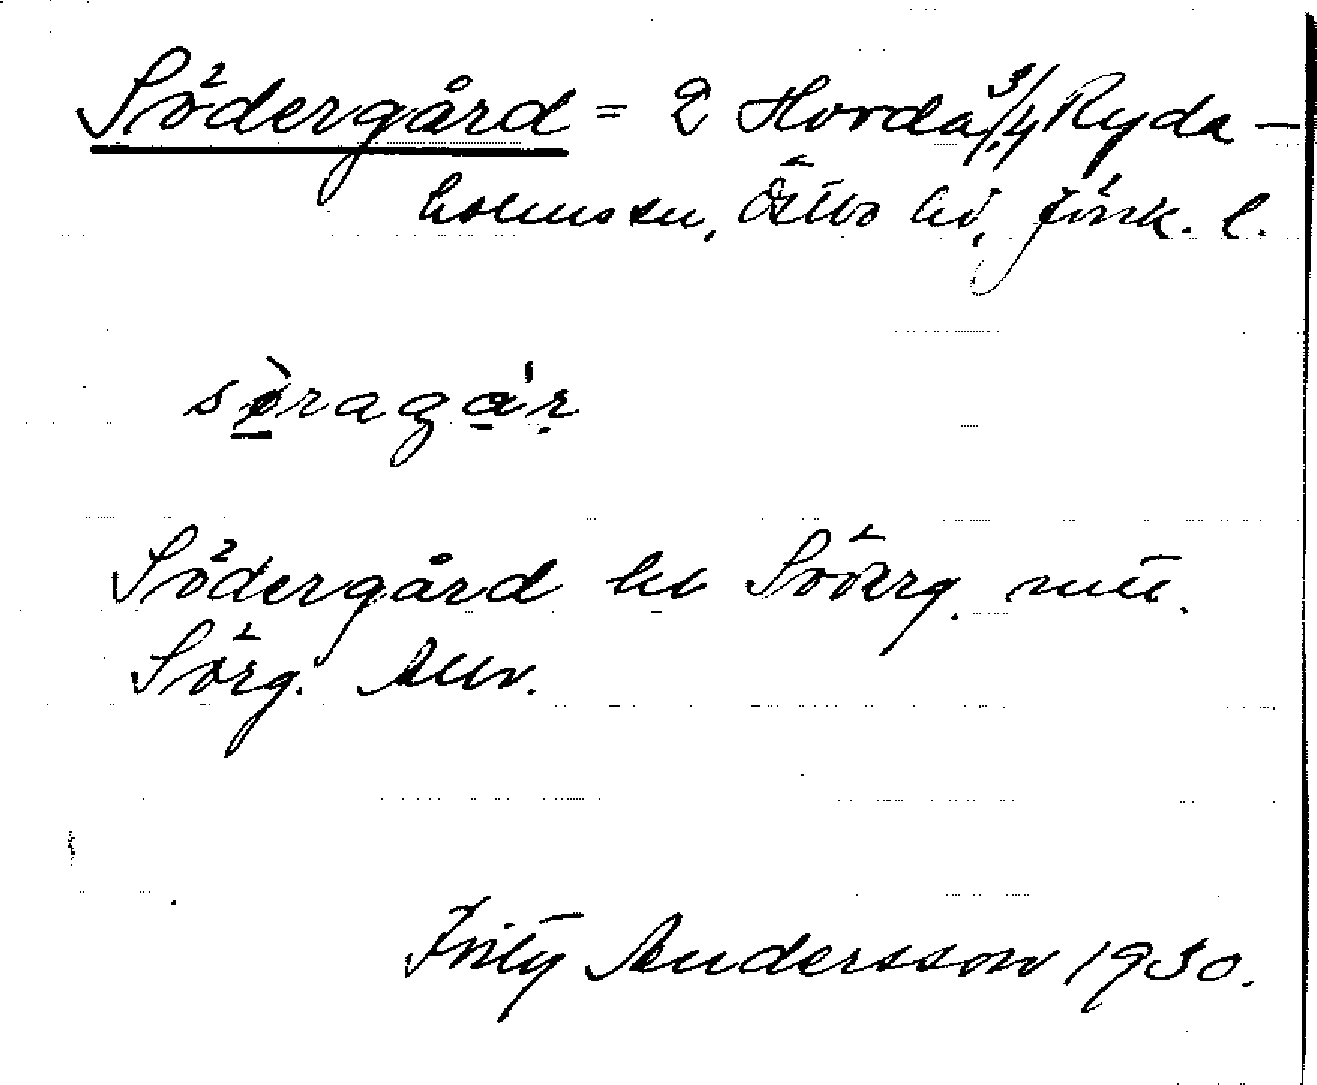 Södergård = 2 Horda 3/4 Ryda-
holms sn, Östbo hd, Jönk. l.
sø̀ragár
Södergård hd Söderg. mtl.
Sörg. Allm.
Fritz Andersson 1930.